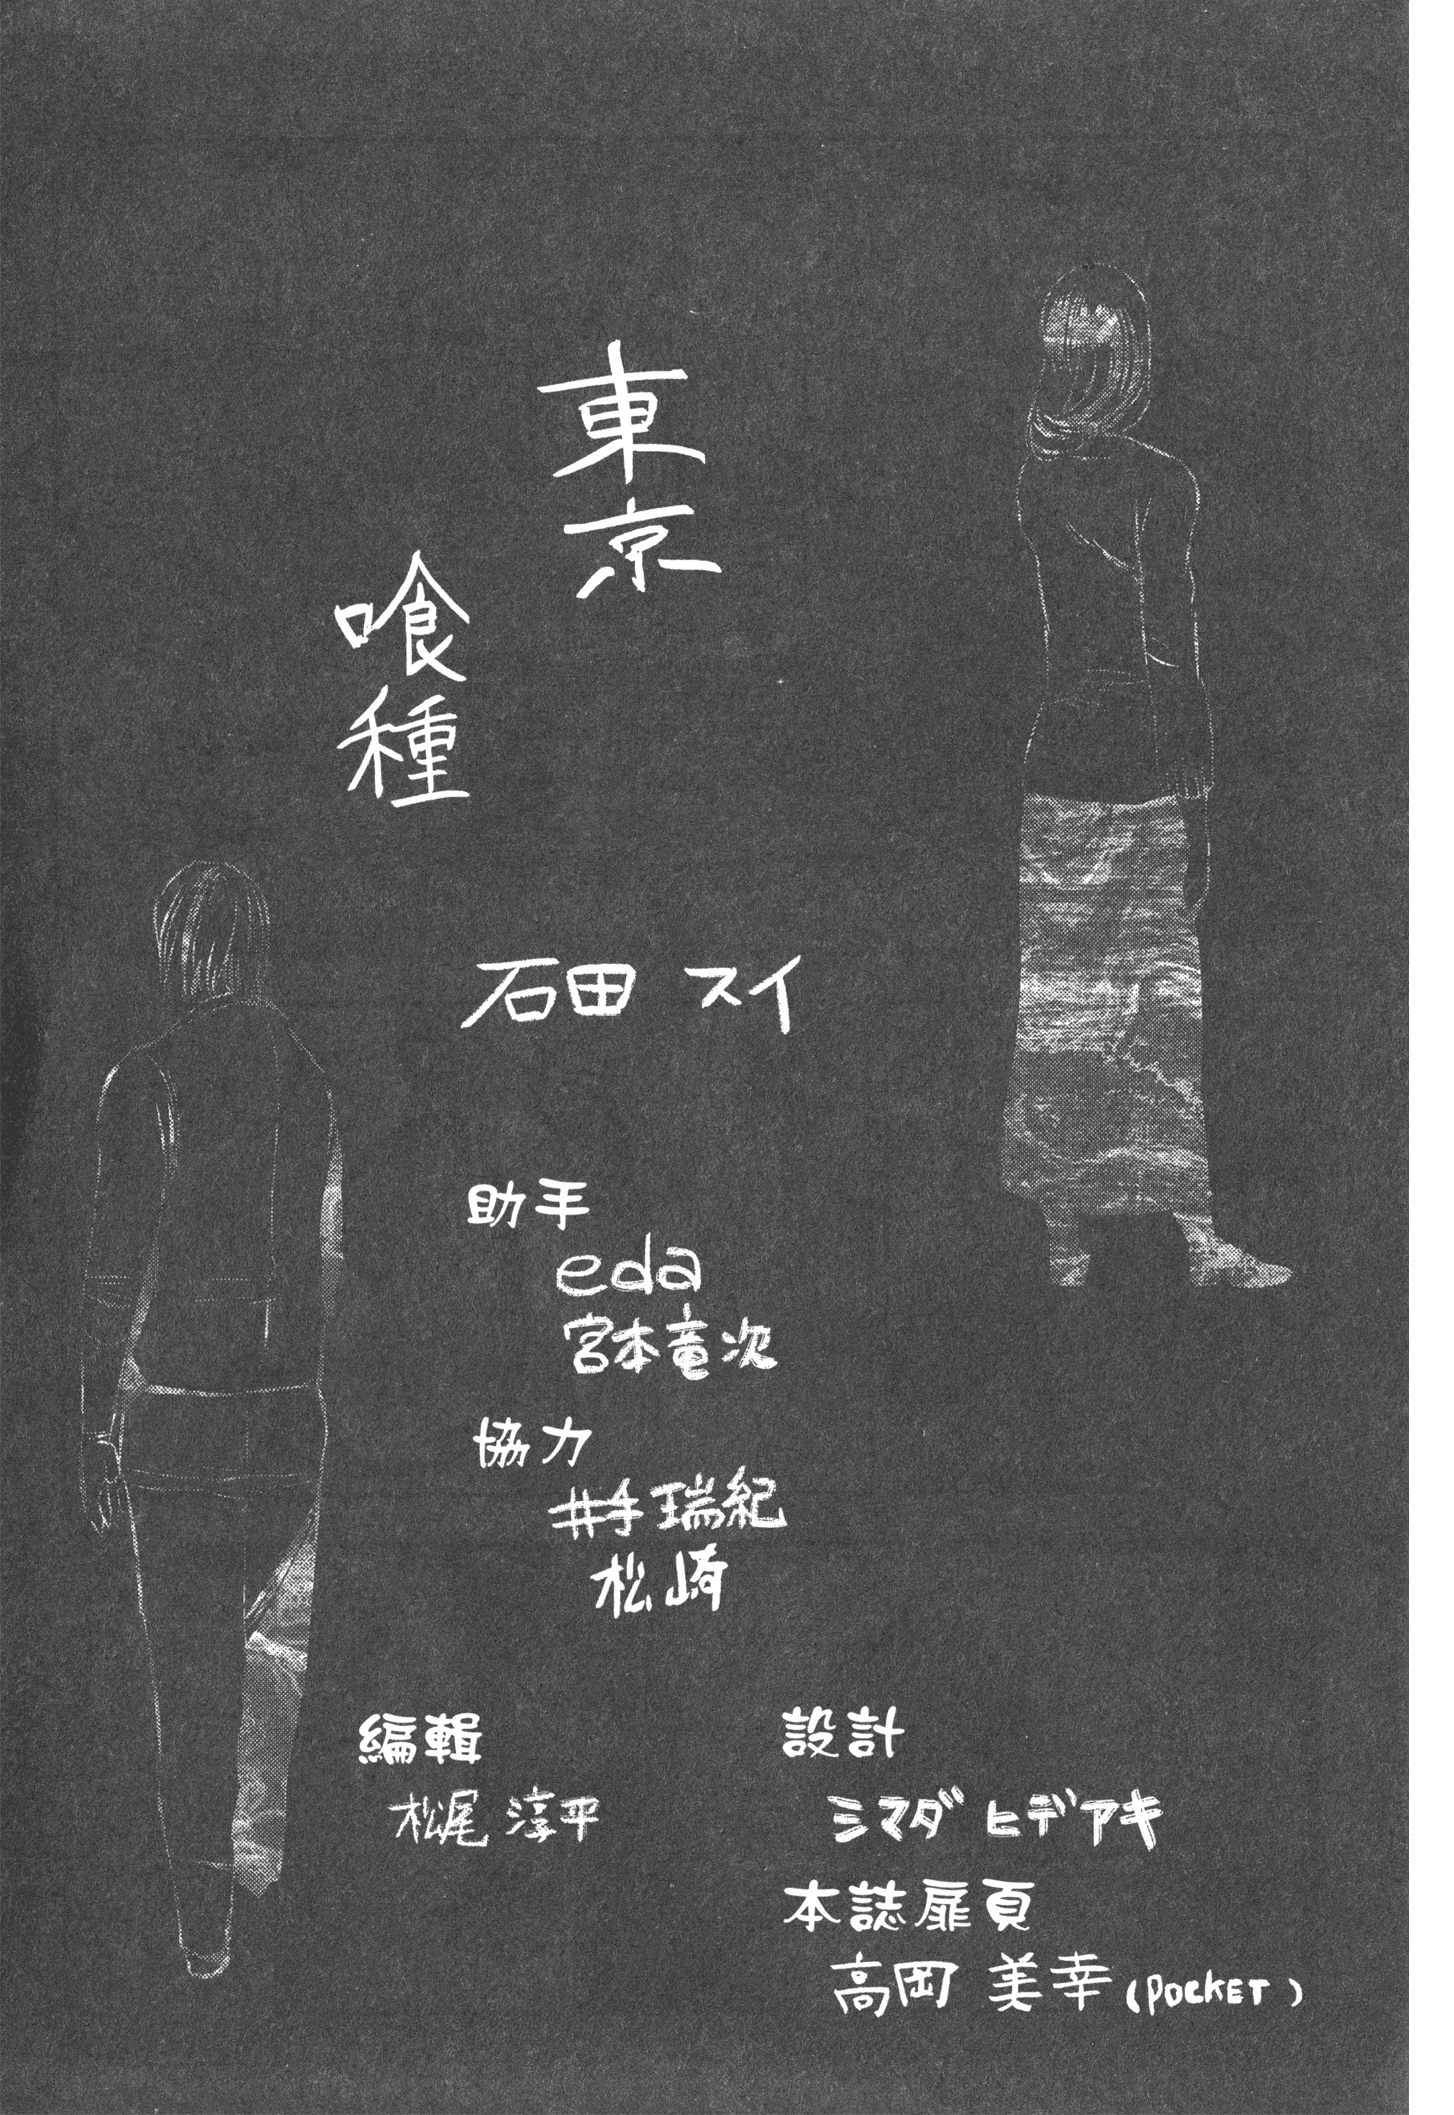 東京
喰種
石田 スイ
助手
eda
宮本竜次
協力
井手瑞紀
松崎
編輯
松尾 淳平
設計
シマダ ヒデアキ
本誌扉頁
高岡 美幸 (POCKET)